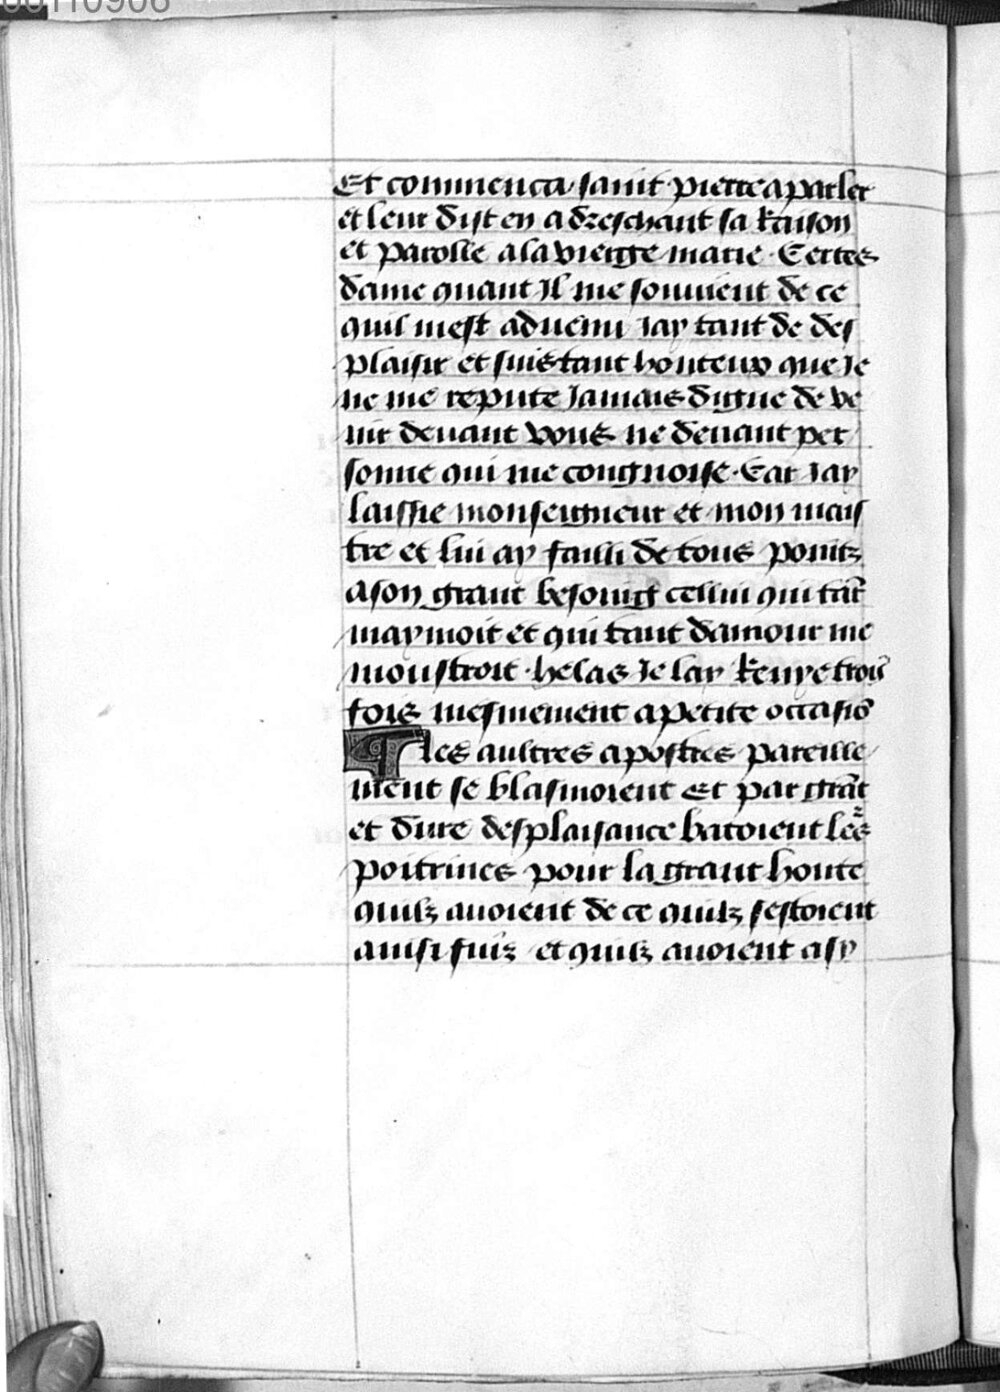 Et commenca saint pierre a parler
et leur dist en adreschant sa raison
et parolle a la vierge marie . Certes
dame quant Il me souuient de ce
quil mest aduenu Jay tant de des
plaisir et suis tant honteux que Je
ne me repute Jamais digne de ve
nir deuant vous ne deuant per
sonne qui me congnoisse . Car Jay
laissie monseigneur et mon mais
tre et lui ay failli de tous pointz
a son grant besoing cellui qui tāt
maymoit et qui tant damour me
moustroit . helas Je lay Renye trois
fois mesmement a petite occasiō
¶ les aultres apostres pareille
ment se blasmoient Et par grāt
et dure desplaisance batoient le᷑s
poitrines pour la grant honte
quilz auoient de ce quilz sestoient
ainsi fuis et quilz auoient asy